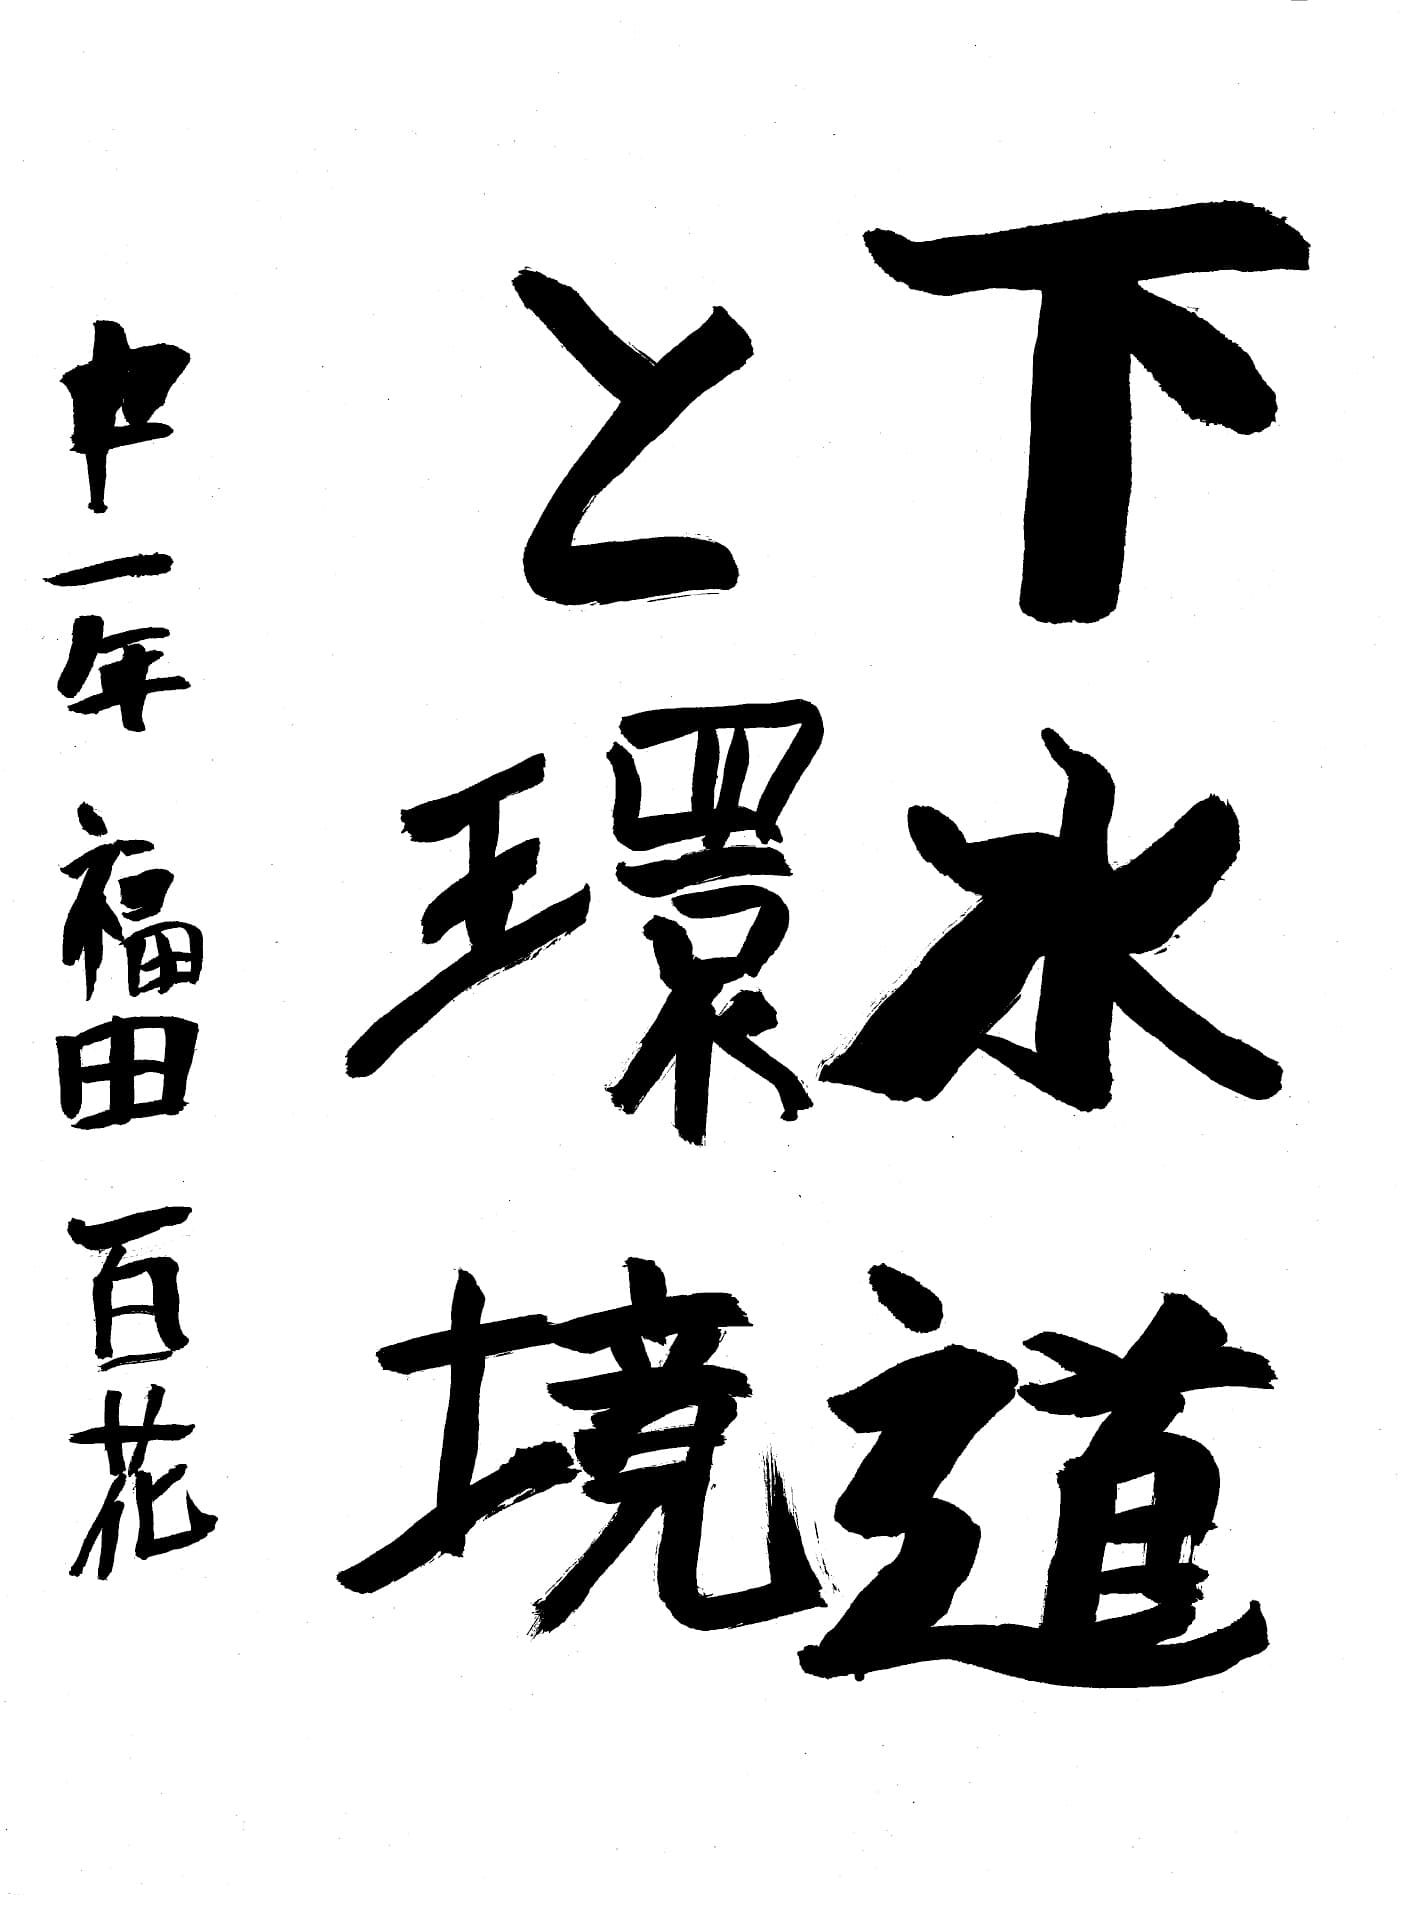 下水道
と環境
中一年 福田 百花